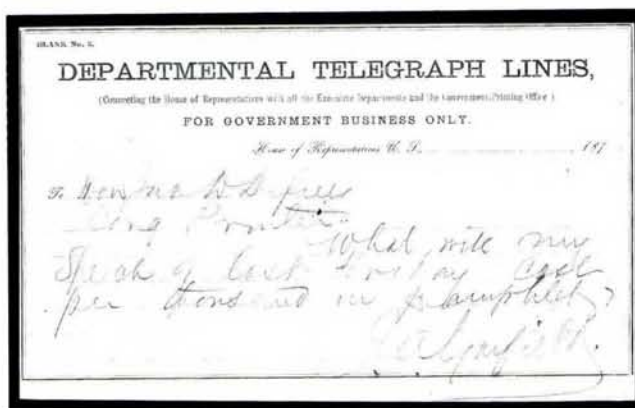 BLANK No. 3.
DEPARTMENTAL TELEGRAPH LINES,
(Connecting the House of Representatives with all the Executive Departments and the Government Printing Office.)
FOR GOVERNMENT BUSINESS ONLY.
House of Representatives U. S. 187
To Hon Jno D Defrees
Cong Printer
What will my
Speech of last Friday cost
per thousand in pamphlet?
J A Garfield.